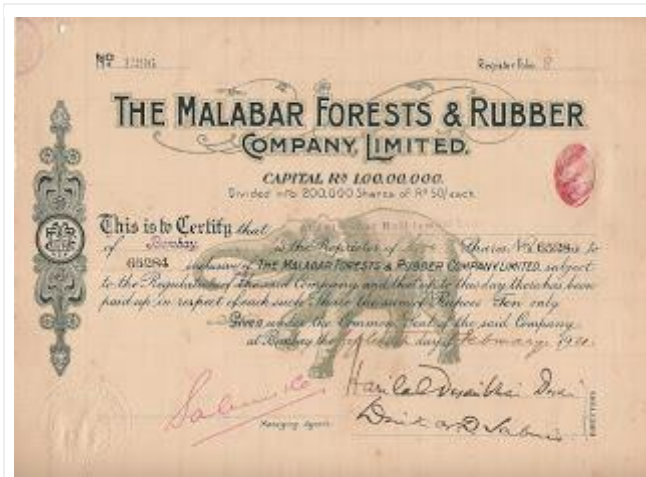 No 1396 Register Folio 8
THE MALABAR FORESTS & RUBBER
COMPANY, LIMITED.
CAPITAL Rs 1,00,00,000.
Divided into 200,000 Shares of Rs 50/each
This is to Certify that
of Bombay is the Proprietor of Shares Nos to
65284 inclusive of THE MALABAR FORESTS & RUBBER COMPANY LIMITED. subject
to the Regulations of the said Company and that up to this day there has been
paid up in respect of each such Share the sum of Rupees Ten only
Given under the Common Seal of the said Company
at Bombay the day of February
Managing Agents.
DIRECTORS